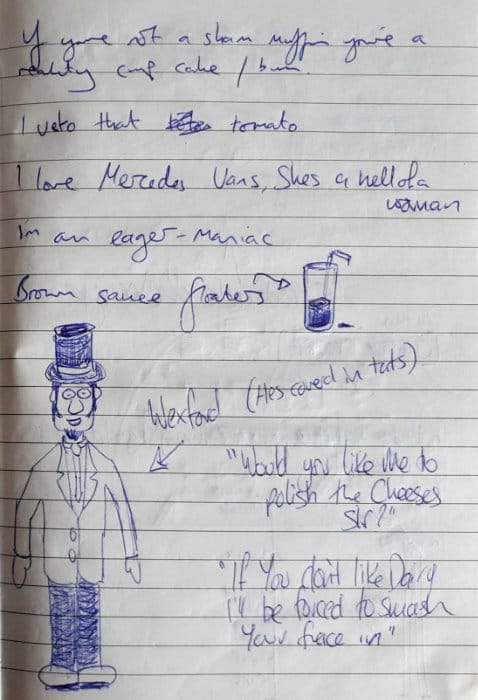 If you're not a sham muffin you're a
reality cup cake / bun.
I veto that tomato
I love Mercedes Vans, Shes a hellofa
woman
I'm an eager-Maniac
Brown sauce floaters
Wexford (Hes covered in tats)
"Would you like Me to
polish the Cheeses
Sir?"
"If You don't like Dairy
I'll be forced to smash
Your face in"